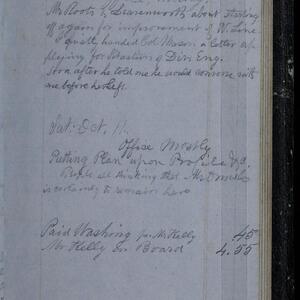 about starting
off again for improvement of W. Line
I quietly handed Col Mason a letter ap-
plying for Position of Div. Eng.
Soon after he told me he would converse with
me before he left.
Sat. Oct. 11.
Office Mostly
Putting Plan upon Profile &c.
People all thinking that
is certainly to remain here
Paid Washing for Mr Kelly .45
Mr Kelly for Board 4.55